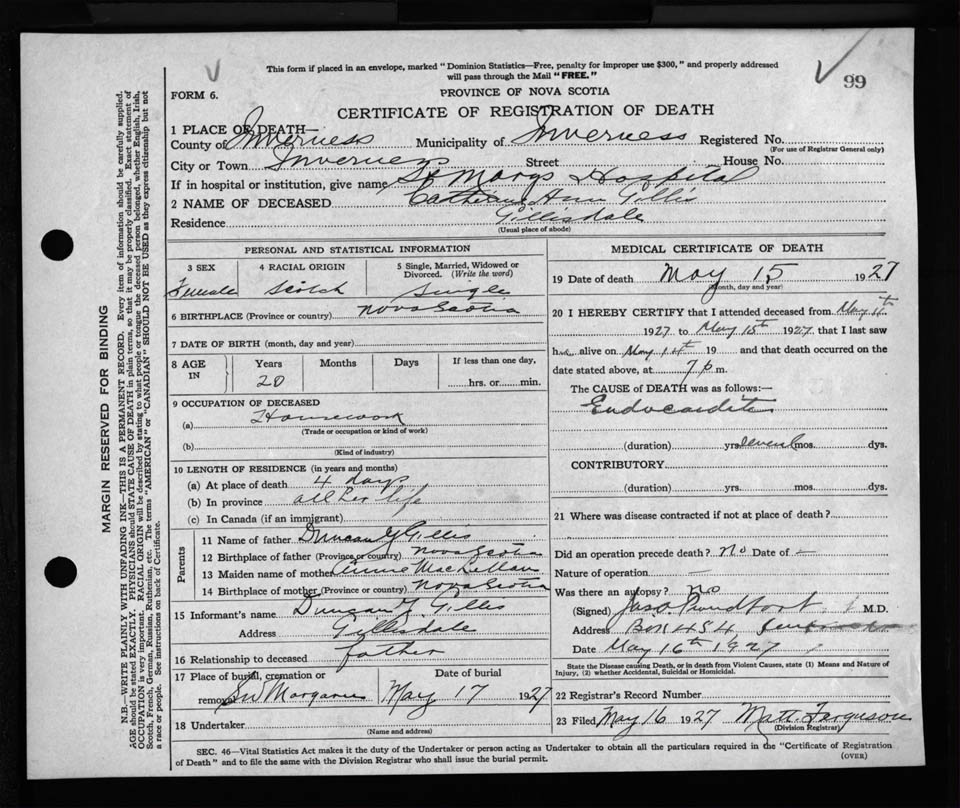 This form if placed in an envelope, marked "Dominion Statistics—Free, penalty for improper use $300," and properly addressed
will pass through the Mail "FREE."
99
FORM 6.
PROVINCE OF NOVA SCOTIA
CERTIFICATE OF REGISTRATION OF DEATH
1 PLACE OF DEATH—
County of Inverness Municipality of Inverness Registered No.
(For use of Registrar General only)
City or Town Inverness Street House No.
If in hospital or institution, give name St Marys Hospital
2 NAME OF DECEASED Catherine Ann Gillis
Residence Gillisdale
(Usual place of abode)
PERSONAL AND STATISTICAL INFORMATION
3 SEX 4 RACIAL ORIGIN 5 Single, Married, Widowed or
Divorced. (Write the word)
Female Scotch Single
6 BIRTHPLACE (Province or country) Nova Scotia
7 DATE OF BIRTH (month, day and year)
8 AGE IN Years Months Days If less than one day,
20 hrs. or min.
9 OCCUPATION OF DECEASED
(a) Housework
(Trade or occupation or kind of work)
(b)
(Kind of industry)
10 LENGTH OF RESIDENCE (in years and months)
(a) At place of death 4 days
(b) In province all her life
(c) In Canada (if an immigrant)
Parents
11 Name of father Duncan Y Gillis
12 Birthplace of father (Province or country) Nova Scotia
13 Maiden name of mother Annie MacLellan
14 Birthplace of mother (Province or country) Nova Scotia
15 Informant's name Duncan Y. Gillis
Address Gillisdale
16 Relationship to deceased father
17 Place of burial, cremation or Date of burial
removal SW Margaree May 17 1927
18 Undertaker
(Name and address)
MEDICAL CERTIFICATE OF DEATH
19 Date of death May 15 1927
(Month, day and year)
20 I HEREBY CERTIFY that I attended deceased from May 11th
1927 to May 15th 1927, that I last saw
her alive on May 14th 19 and that death occurred on the
date stated above, at 7 p m.
The CAUSE of DEATH was as follows:—
Endocarditis
(duration) yrs. several mos. dys.
CONTRIBUTORY
(duration) yrs. mos. dys.
21 Where was disease contracted if not at place of death?
Did an operation precede death? no Date of —
Nature of operation —
Was there an autopsy? no
(Signed) Jas. Proudfoot M.D.
Address Box 454
Date May 16th 1927
State the Disease causing Death, or in death from Violent Causes, state (1) Means and Nature of
Injury, (2) whether Accidental, Suicidal or Homicidal.
22 Registrar's Record Number
23 Filed May 16 1927 Matt. Ferguson
(Division Registrar)
SEC. 46—Vital Statistics Act makes it the duty of the Undertaker or person acting as Undertaker to obtain all the particulars required in the "Certificate of Registration
of Death" and to file the same with the Division Registrar who shall issue the burial permit.
(OVER)
MARGIN RESERVED FOR BINDING
N.B.—WRITE PLAINLY WITH UNFADING INK—THIS IS A PERMANENT RECORD. Every item of information should be carefully supplied.
AGE should be stated EXACTLY. PHYSICIANS should STATE CAUSE OF DEATH in plain terms, so that it may be properly classified. Exact statement of
OCCUPATION is very important. RACIAL ORIGIN will be described by stating to what people or tongue the deceased person belonged, whether English, Irish,
Scotch, French, German, Russian, Ruthenian, etc. The terms "AMERICAN" or "CANADIAN" SHOULD NOT BE USED as they express citizenship but not
a race or people. See instructions on back of Certificate.